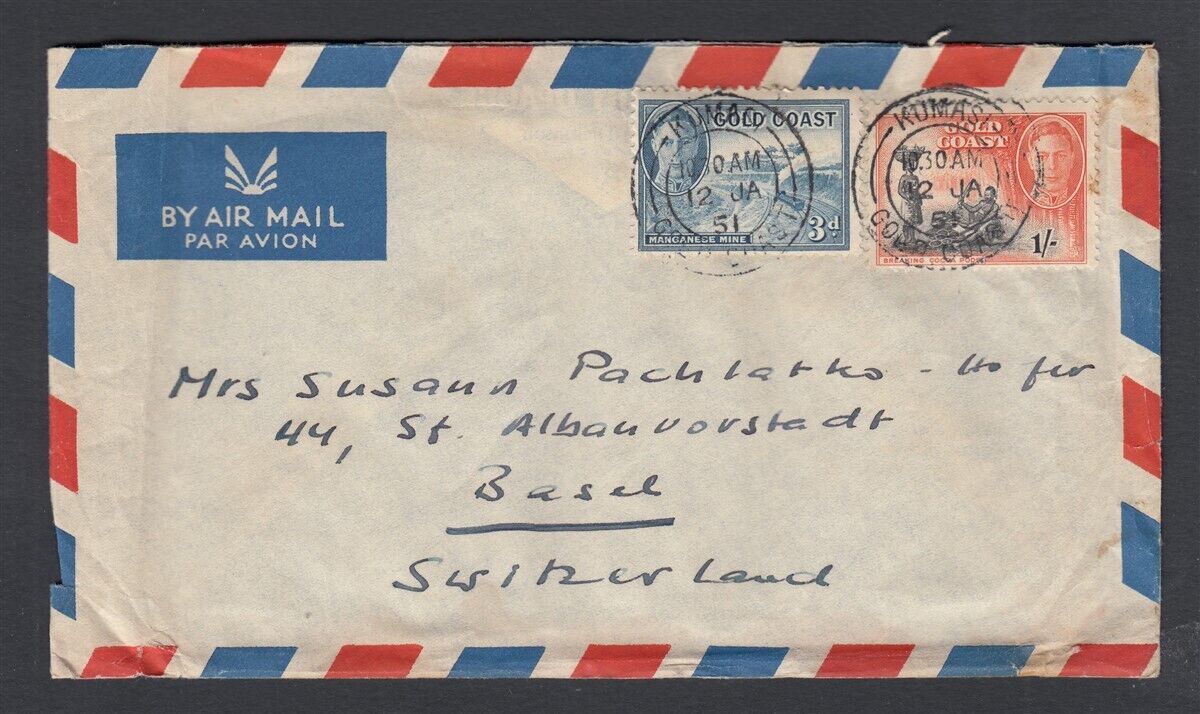 BY AIR MAIL
PAR AVION
GOLD COAST
MANGANESE MINE 3d.
KUMASI
10.30 AM
12 JA
51
GOLD COAST
GOLD
COAST
BREAKING COCOA PODS 1/-
KUMASI
10.30 AM
12 JA
51
GOLD COAST
Mrs Susann Pachlatko - Hofer
44, St. Albanvorstadt
Basel
Switzerland